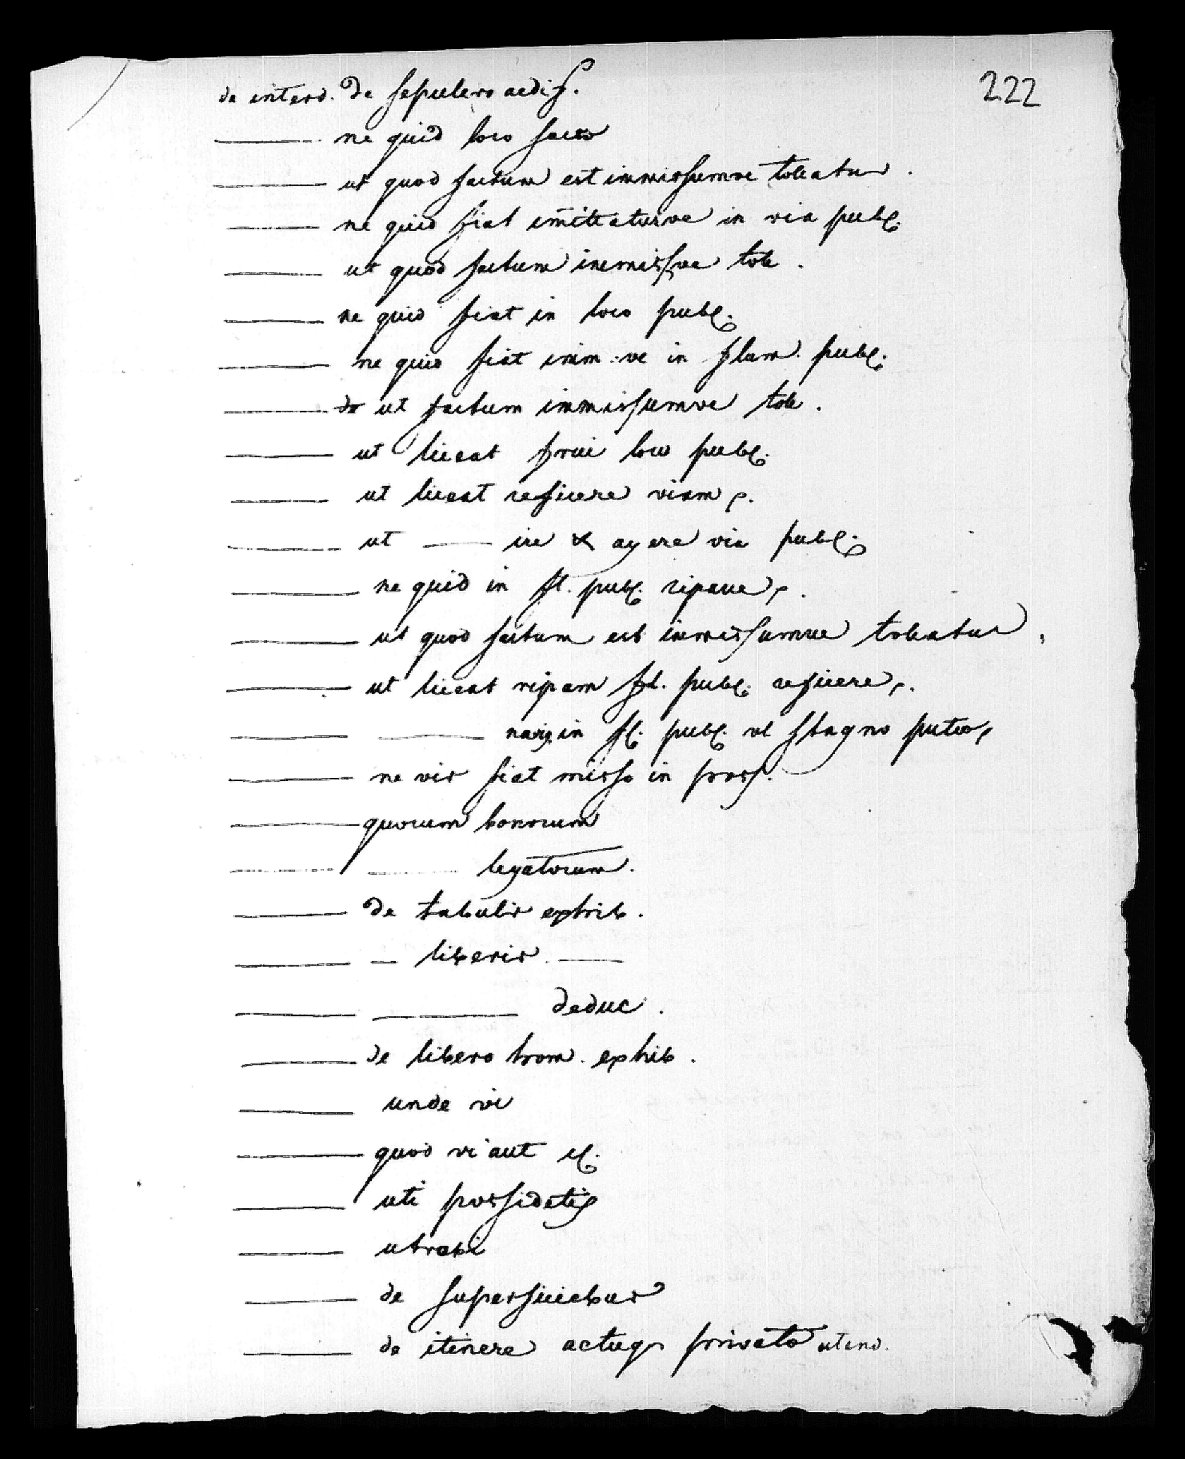 222
de interd. de sepulcro aedif.
——— ne quid loco sacro
——— ut quod factum est immissumve tollatur.
——— ne quid fiat im̄ittaturve in via publ.
——— ut quod factum immissve toll.
——— ne quid fiat in loco publ.
——— ne quid fiat imm. ve in flum. publ.
——— ut factum immissumve toll.
——— ut liceat frui loco publ.
——— ut liceat reficere viam p.
——— ut —— ire & agere via publ.
——— ne quid in fl. publ. ripave p.
——— ut quod factum est immissumve tollatur.
——— ut liceat ripam fl. publ. reficere p.
——— ——— navig. in fl. publ. vl stagno
——— ne vis fiat misso in poss.
——— quorum bonorum
——— ——— legatorum.
——— de tabulis exhib.
——— — liberis ——
——— ——— deduc.
——— de libero hom. exhib.
——— unde vi
——— quod vi aut cl.
——— uti possidetis
——— utrubi
——— de superficiebus
——— de itinere actuq. privato utend.